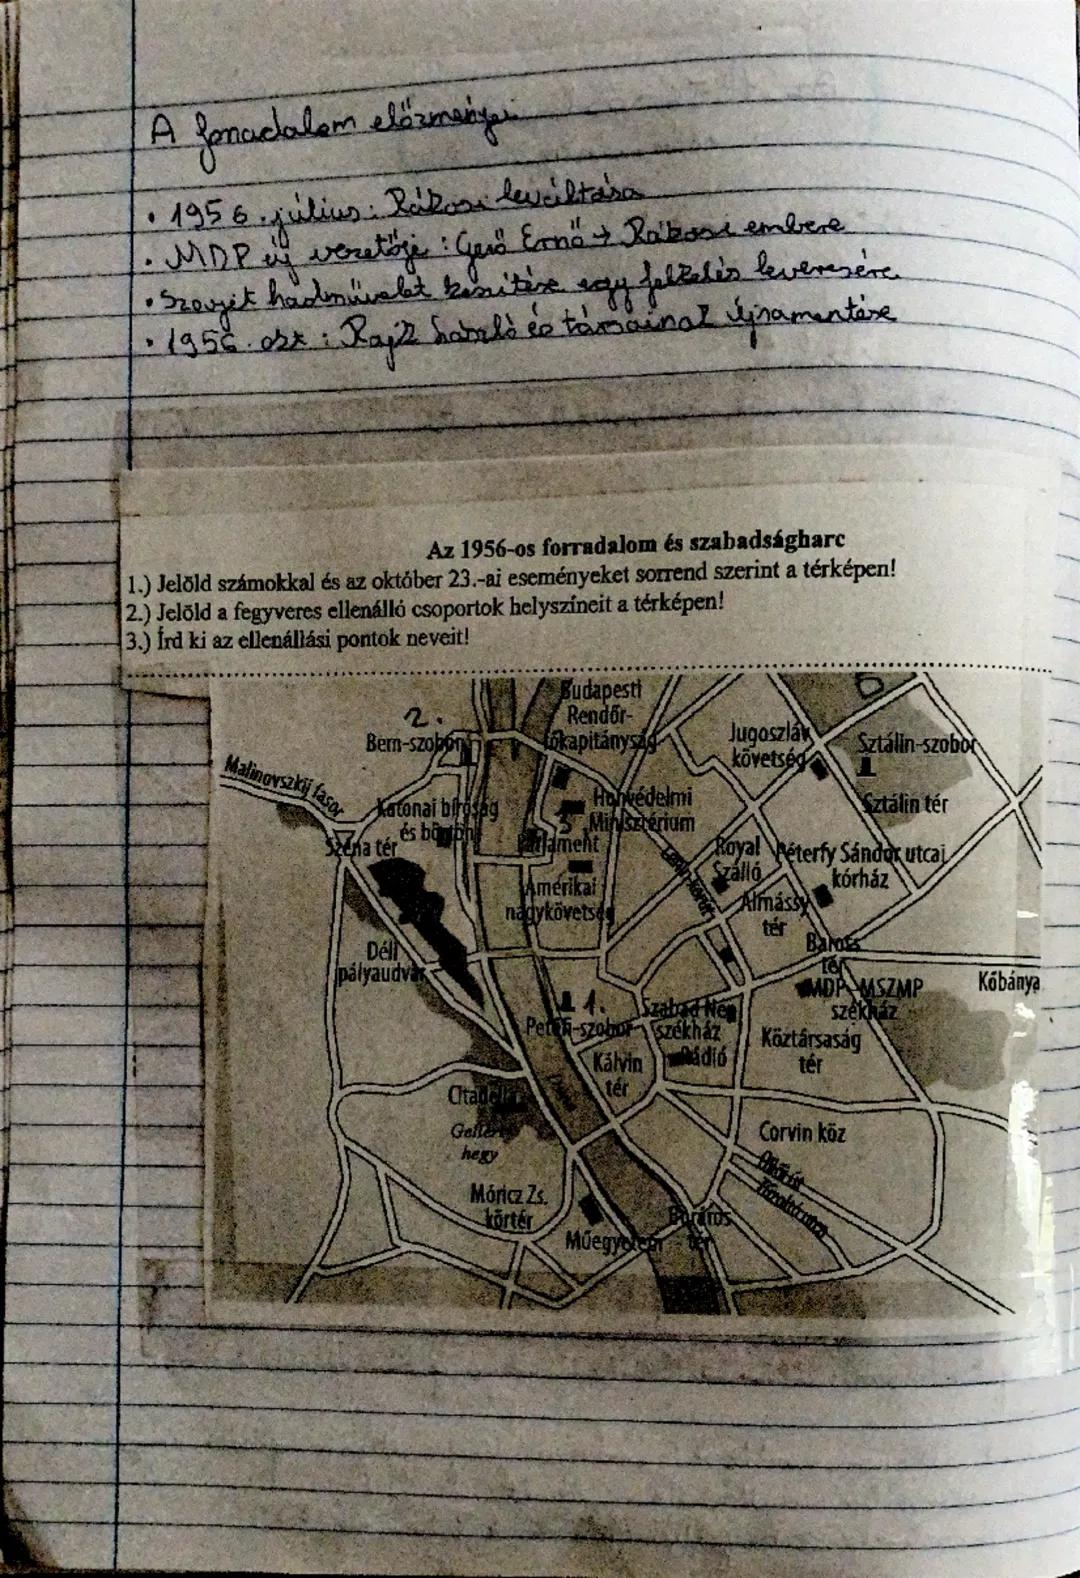 A forradalom előzményei
• 1956. július: Rákosi leváltása
• MDP új vezetője: Gerő Ernő → Rákosi embere
• Szovjet hadművelet készítése egy felkelés leverésére
• 1956. okt: Rajk László és társainak újratemetése
Az 1956-os forradalom és szabadságharc
1.) Jelöld számokkal és az október 23.-ai eseményeket sorrend szerint a térképen!
2.) Jelöld a fegyveres ellenálló csoportok helyszíneit a térképen!
3.) Írd ki az ellenállási pontok neveit!
Budapesti
Rendőr-
főkapitányság
2.
Bem-szobor
Jugoszláv
követség
5
Sztálin-szobor
Sztálin tér
Malinovszkij fasor
Katonai bíróság
és börtön
Széna tér
Honvédelmi
Minisztérium
3
Parlament
Amerikai
nagykövetség
Royal
Szálló
Péterfy Sándor utcai
kórház
Almássy
tér
Déli
pályaudvar
Baross
tér
MDP-MSZMP
székház
Kőbánya
1.
Petőfi-szobor
Szabad Nép
székház
Rádió
Köztársaság
tér
Kálvin
tér
Citadella
Gellért
hegy
Corvin köz
Üllői út
Móricz Zs.
körtér
Műegyetem
Boráros
tér